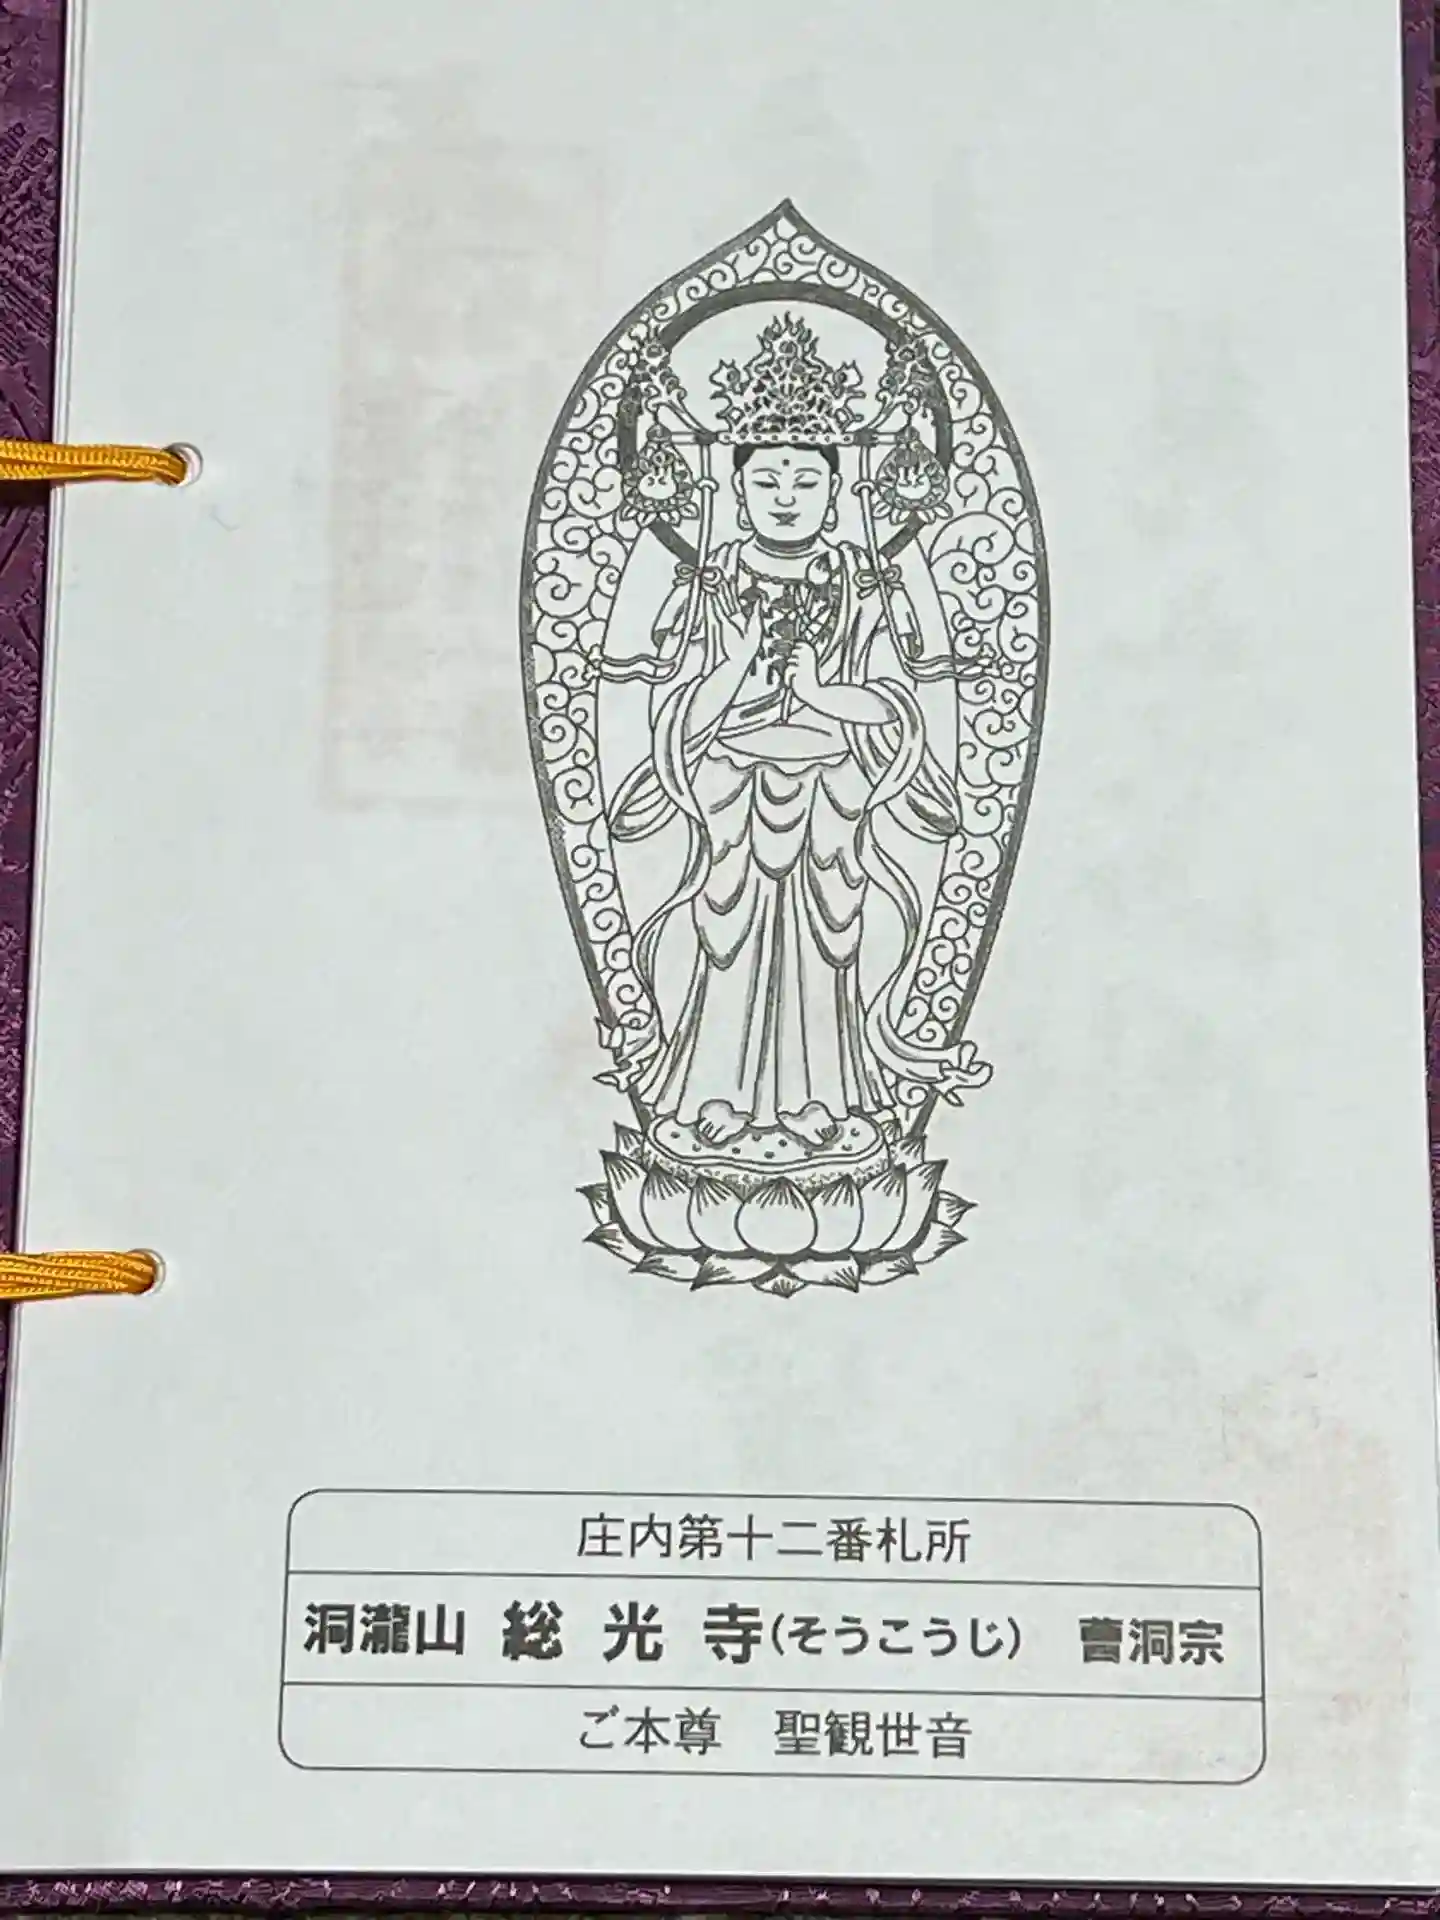 庄内第十二番札所
洞瀧山 総光寺(そうこうじ) 曹洞宗
ご本尊 聖観世音